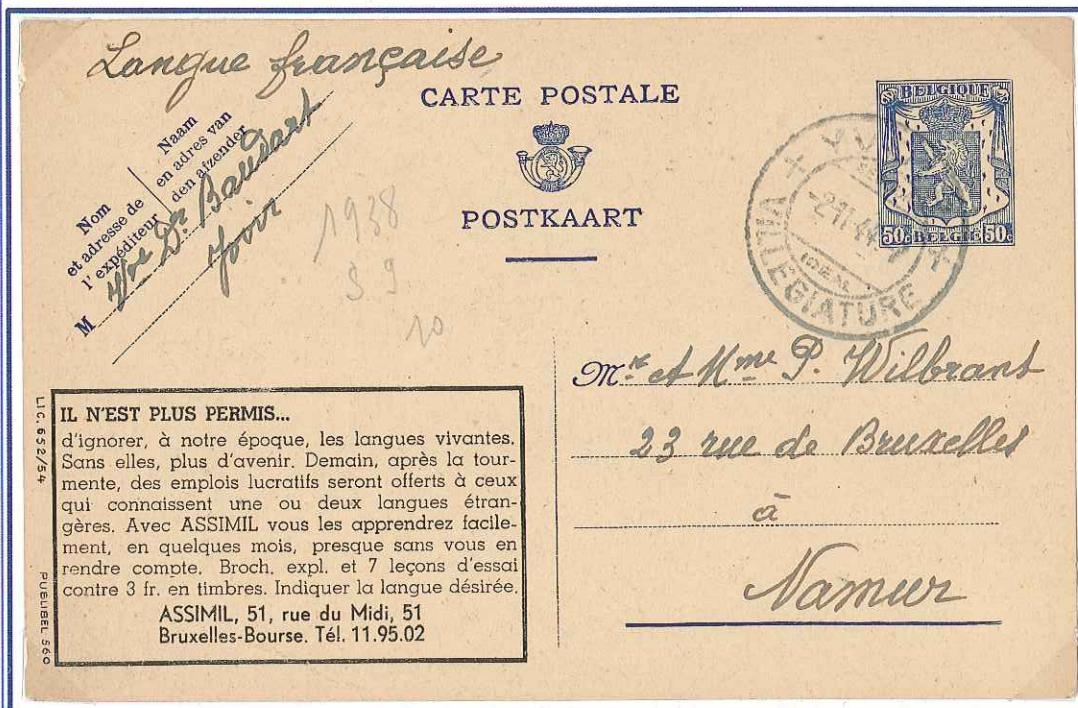 Langue française
CARTE POSTALE
POSTKAART
BELGIQUE
50c BELGIË 50c
VILLÉGIATURE
IDEAL
Naam
en adres van
den afzender
Nom
et adresse de
l'expéditeur
M Dr Baudart
Yvoir
1938
S 9
10
Mr et Mme P. Wilbrant
23 rue de Bruxelles
à
Namur
LIC. 652/54
PUBLIBEL 560
IL N'EST PLUS PERMIS...
d'ignorer, à notre époque, les langues vivantes.
Sans elles, plus d'avenir. Demain, après la tour-
mente, des emplois lucratifs seront offerts à ceux
qui connaissent une ou deux langues étran-
gères. Avec ASSIMIL vous les apprendrez facile-
ment, en quelques mois, presque sans vous en
rendre compte. Broch. expl. et 7 leçons d'essai
contre 3 fr. en timbres. Indiquer la langue désirée.
ASSIMIL, 51, rue du Midi, 51
Bruxelles-Bourse. Tél. 11.95.02